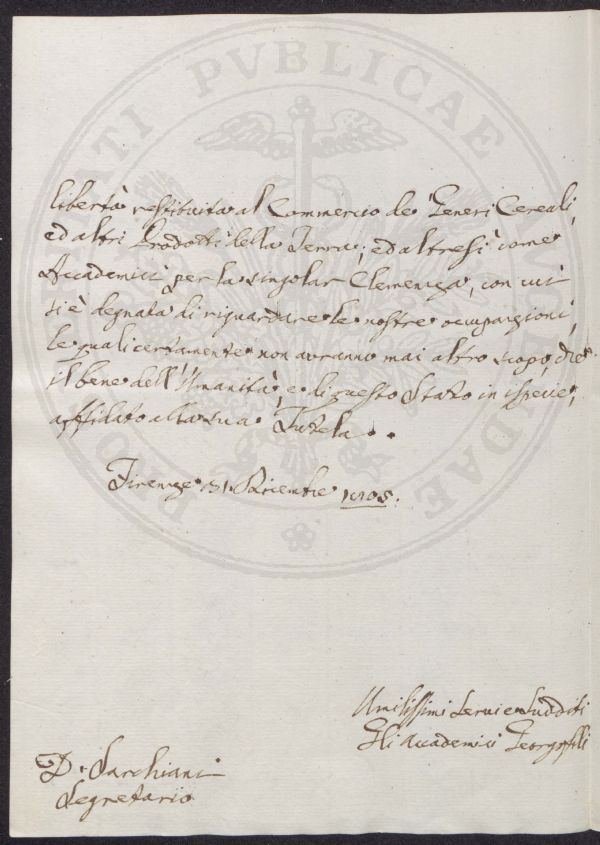 PROSPERITATI PVBLICAE AVGENDAE
libertà restituita al Commercio de Generi Cereali,
ed altri Prodotti della Terra; ed altresì come
Accademici per la singolar Clemenza, con cui
si è degnata di riguardare le nostre occupazioni,
le quali certamente non avranno mai altro scopo, che
il bene dell'Umanità, e di questo Stato in ispecie,
affidato alla sua Tutela.
Firenze 31. Dicembre
Umilissimi Servi e Sudditi
Gli Accademici Georgofili
D. Sarchiani
Segretario